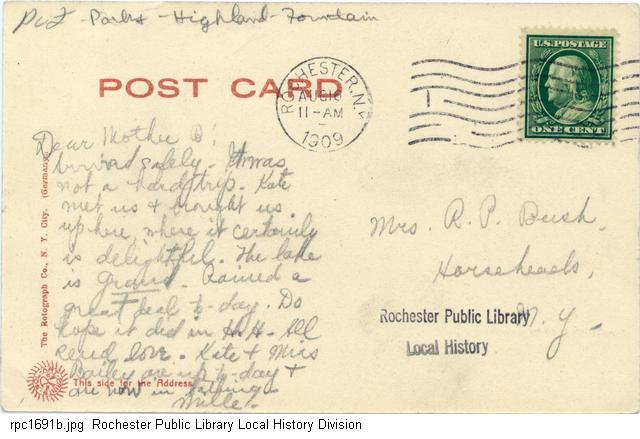 Pct - Parks - Highland - Fountain
POST CARD
ROCHESTER, N.Y.
AUG 16
11-AM
1909
U.S. POSTAGE
ONE CENT
Dear Mother B;
Arrived safely. It was
not a hard trip. Kate
met us & brought us
up here where it certainly
is delightful. The lake
is grand. Rained a
great deal to-day. Do
hope it did in H.H. All
send love. Kate & Miss
Bailey are up to-day &
are now in bathing.
Millie.
Mrs. R. P. Bush.
Horseheads,
N. Y.
Rochester Public Library
Local History
The Rotograph Co., N. Y. City. (Germany)
This side for the Address
rpc1691b.jpg Rochester Public Library Local History Division